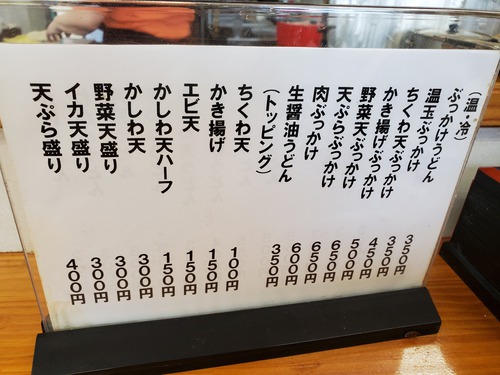 (温・冷)
ぶっかけうどん 350円
温玉ぶっかけ 350円
ちくわ天ぶっかけ 450円
かき揚げぶっかけ 500円
野菜天ぶっかけ 650円
天ぷらぶっかけ 650円
肉ぶっかけ 600円
生醤油うどん 350円
(トッピング)
ちくわ天 100円
かき揚げ 150円
エビ天 150円
かしわ天ハーフ 150円
かしわ天 300円
野菜天盛り 300円
イカ天盛り 300円
天ぷら盛り 400円